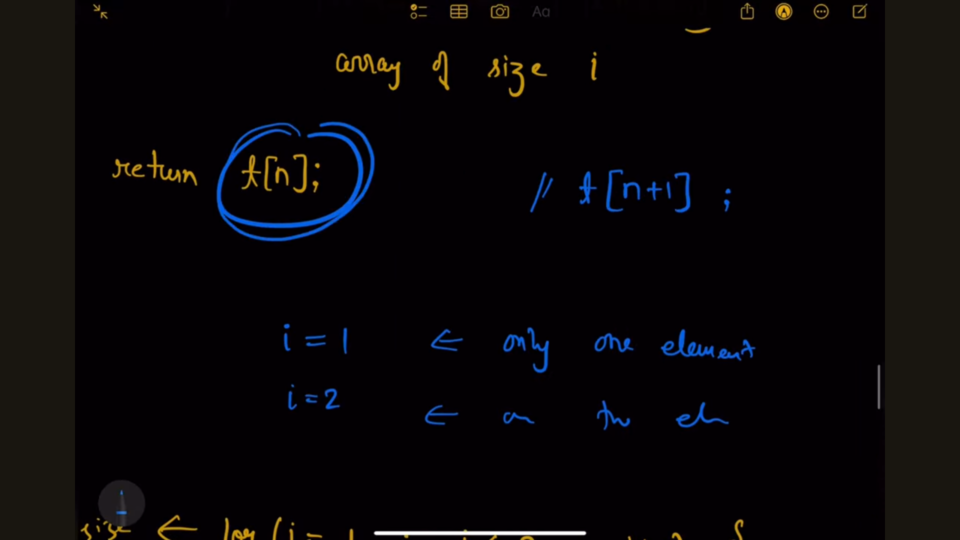 Aa
array of size i
return t[n];
// t[n+1] ;
i = 1 ← only one element
i = 2 ←
size ← for ( i = 1